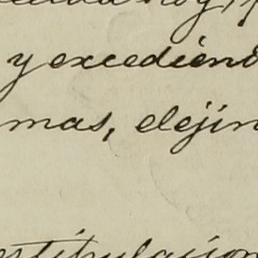 y excediend
mas, elejin
estipulacion